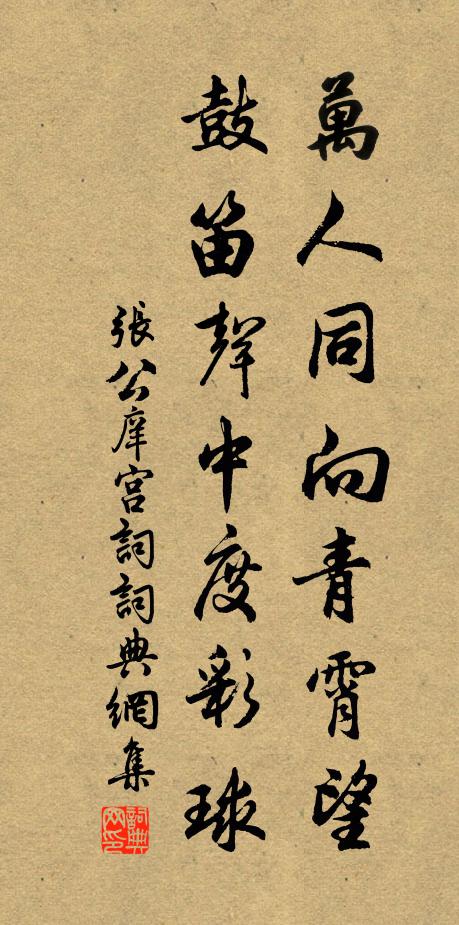 萬人同向青霄望
鼓笛聲中度彩球
張公庠宮詞詞典網集
詞典
网印